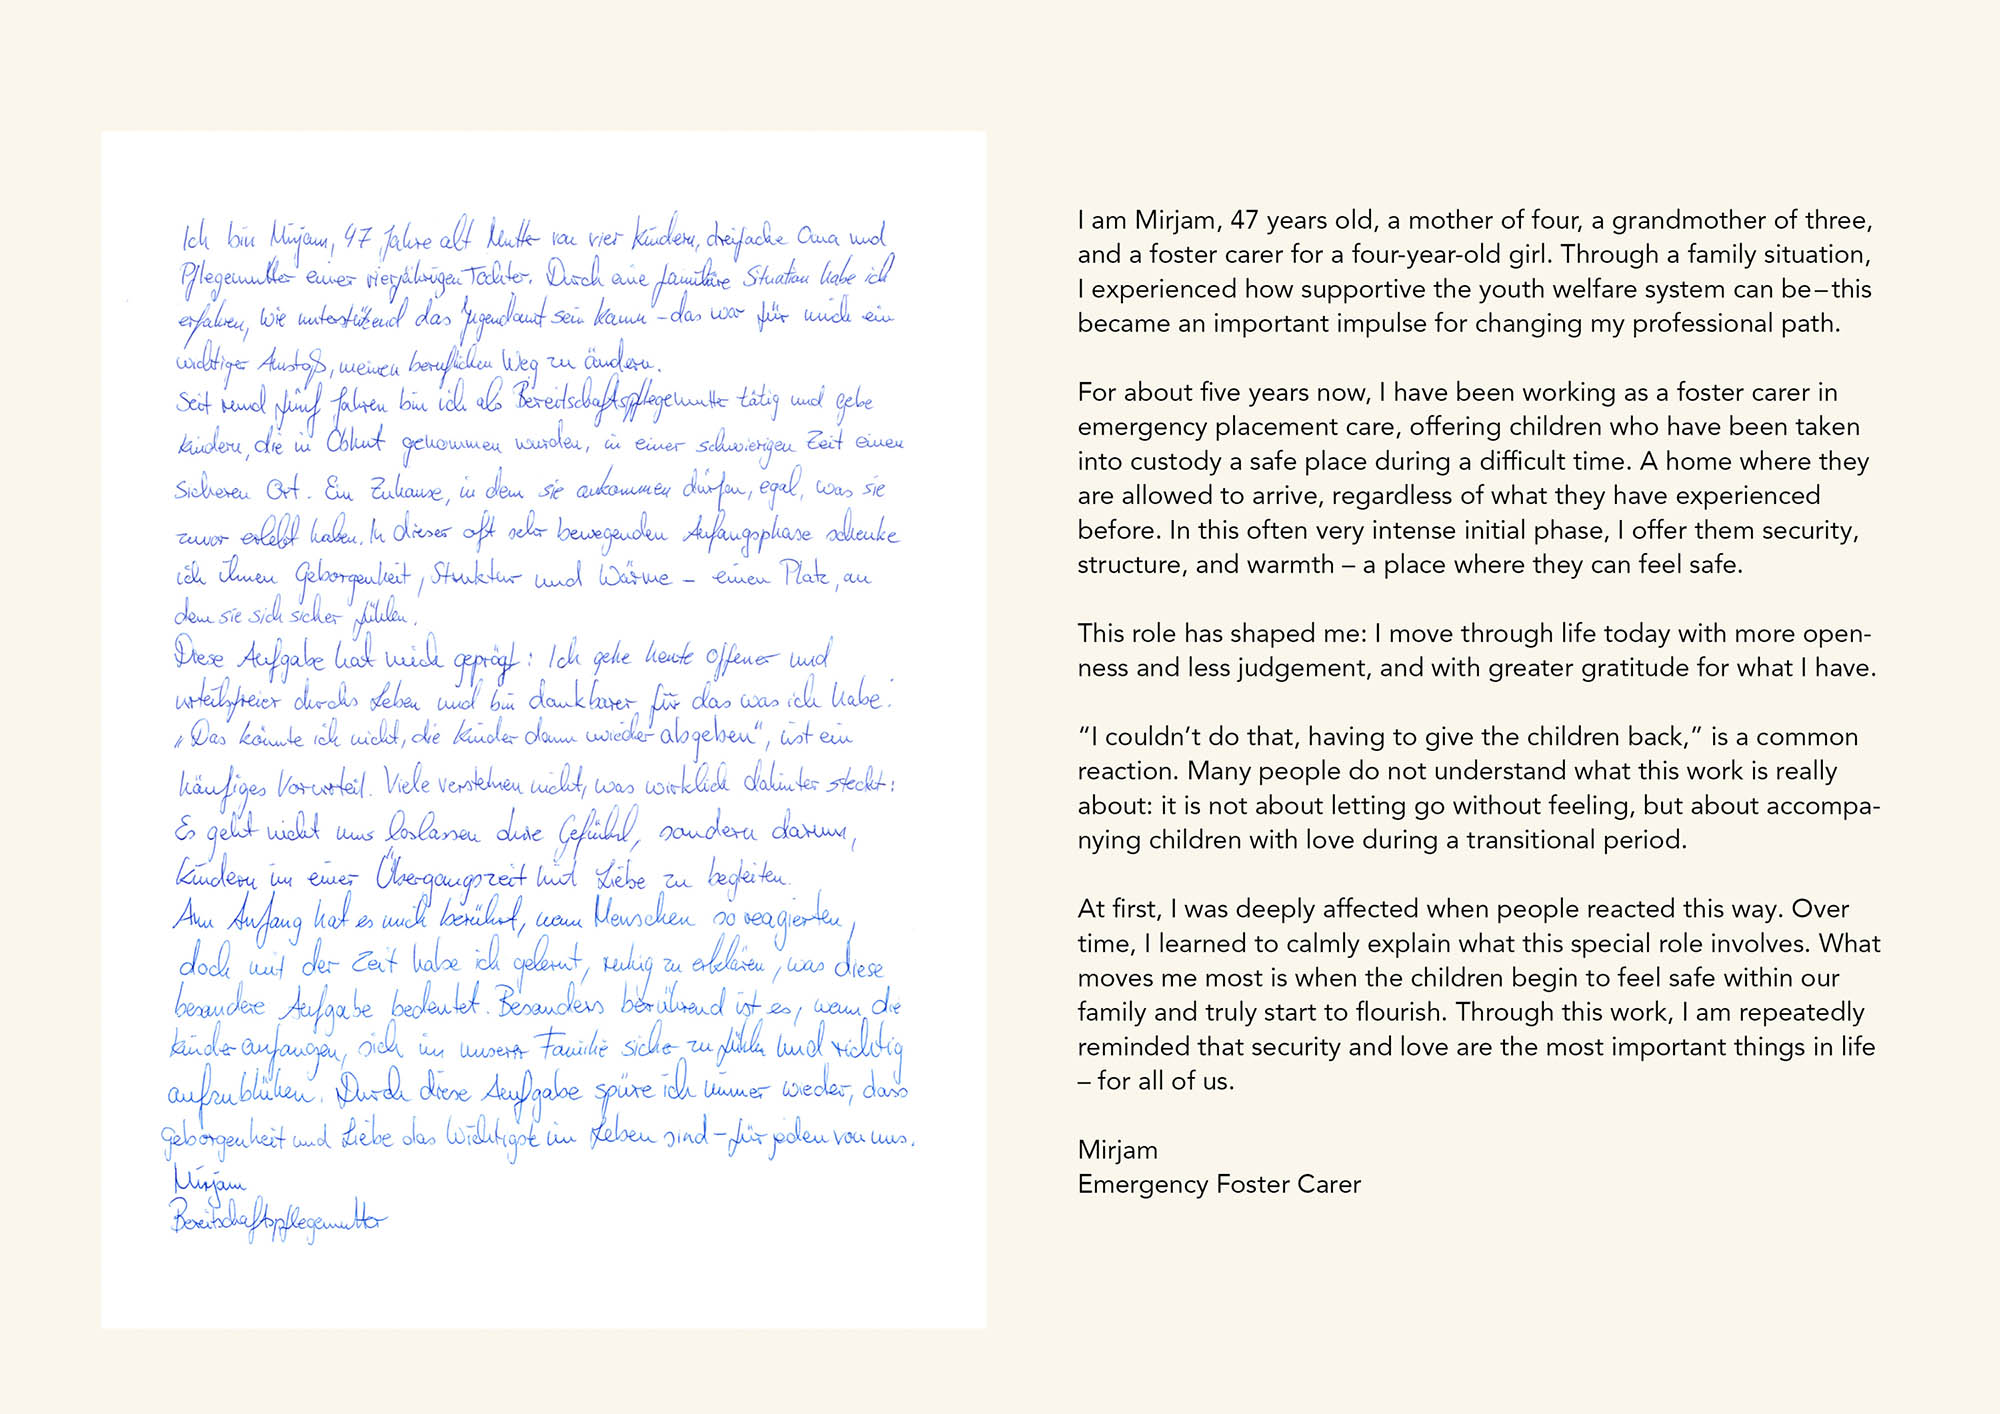 Ich bin Mirjam, 47 Jahre alt Mutter von vier Kindern, dreifache Oma und
Pflegemutter einer vierjährigen Tochter. Durch eine familiäre Situation habe ich
erfahren, wie unterstützend das Jugendamt sein kann – das war für mich ein
wichtiger Anstoß, meinen beruflichen Weg zu ändern.
Seit rund fünf Jahren bin ich als Bereitschaftspflegemutter tätig und gebe
Kindern, die in Obhut genommen wurden, in einer schwierigen Zeit einen
sicheren Ort. Ein Zuhause, in dem sie ankommen dürfen, egal, was sie
zuvor erlebt haben. In dieser oft sehr bewegenden Anfangsphase schenke
ich ihnen Geborgenheit, Struktur und Wärme – einen Platz, an
dem sie sich sicher fühlen.
Diese Aufgabe hat mich geprägt: Ich gehe heute offener und
urteilsfreier durchs Leben und bin dankbarer für das was ich habe.
„Das könnte ich nicht, die Kinder dann wieder abgeben“, ist ein
häufiges Vorurteil. Viele verstehen nicht, was wirklich dahinter steckt:
Es geht nicht ums loslassen ohne Gefühl, sondern darum,
Kindern in einer Übergangszeit mit Liebe zu begleiten.
Am Anfang hat es mich berührt, wenn Menschen so reagierten,
doch mit der Zeit habe ich gelernt, ruhig zu erklären, was diese
besondere Aufgabe bedeutet. Besonders berührend ist es, wenn die
Kinder anfangen, sich in unserer Familie sicher zu fühlen und richtig
aufzublühen. Durch diese Aufgabe spüre ich immer wieder, dass
Geborgenheit und Liebe das Wichtigste im Leben sind – für jeden von uns.
Mirjam
Bereitschaftspflegemutter
I am Mirjam, 47 years old, a mother of four, a grandmother of three,
and a foster carer for a four-year-old girl. Through a family situation,
I experienced how supportive the youth welfare system can be – this
became an important impulse for changing my professional path.
For about five years now, I have been working as a foster carer in
emergency placement care, offering children who have been taken
into custody a safe place during a difficult time. A home where they
are allowed to arrive, regardless of what they have experienced
before. In this often very intense initial phase, I offer them security,
structure, and warmth – a place where they can feel safe.
This role has shaped me: I move through life today with more open-
ness and less judgement, and with greater gratitude for what I have.
“I couldn’t do that, having to give the children back,” is a common
reaction. Many people do not understand what this work is really
about: it is not about letting go without feeling, but about accompa-
nying children with love during a transitional period.
At first, I was deeply affected when people reacted this way. Over
time, I learned to calmly explain what this special role involves. What
moves me most is when the children begin to feel safe within our
family and truly start to flourish. Through this work, I am repeatedly
reminded that security and love are the most important things in life
– for all of us.
Mirjam
Emergency Foster Carer